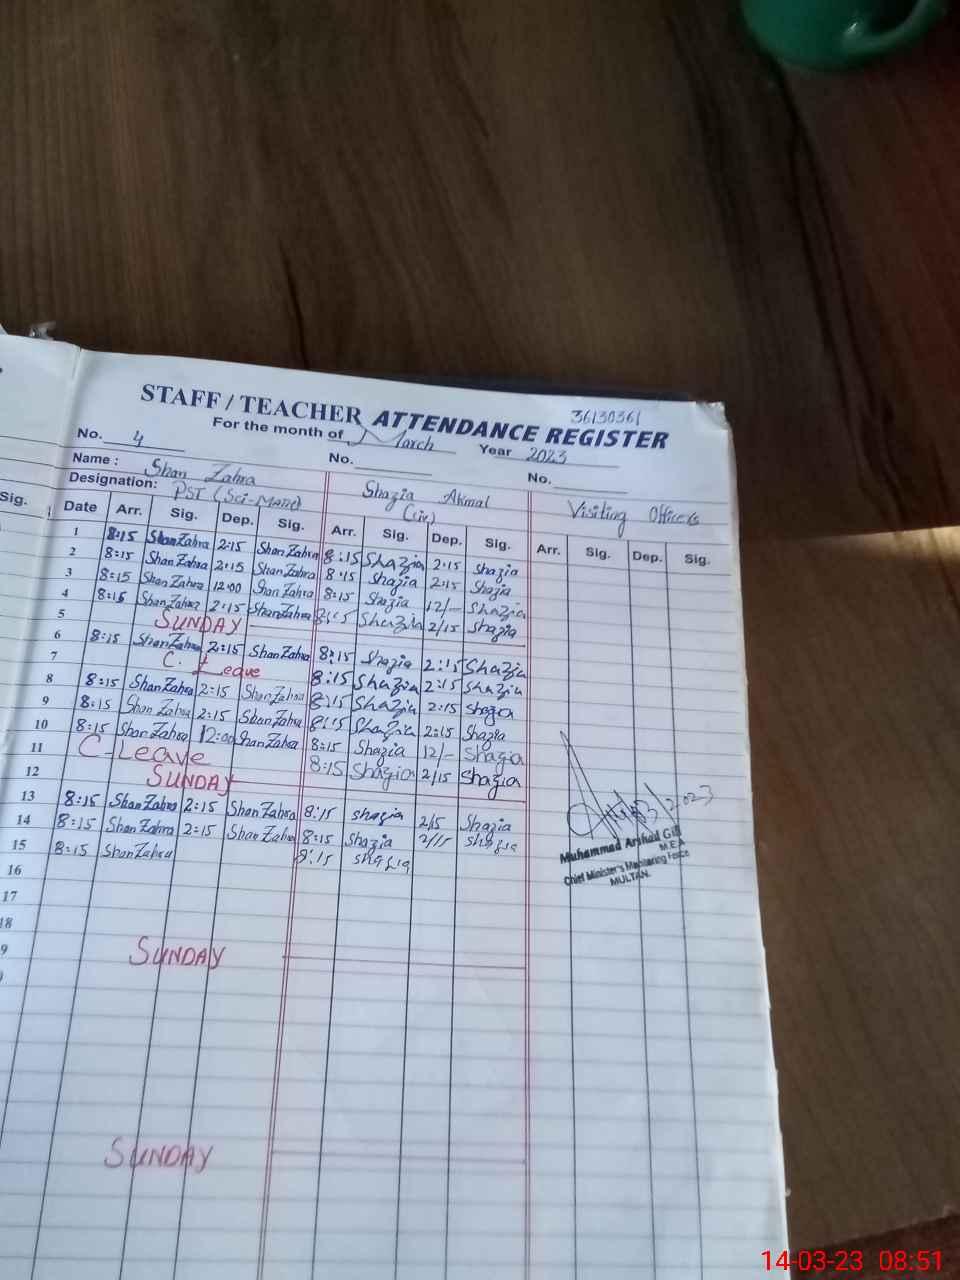 36130361
STAFF / TEACHER ATTENDANCE REGISTER
For the month of March Year 2023
No. 4 No. No.
Name : Shan Zahra Shazia Akmal Visiting Officers
Designation: PST (Sci-Math) (iv)
Sig. Date Arr. Sig. Dep. Sig. Arr. Sig. Dep. Sig. Arr. Sig. Dep. Sig.
1 8:15 ShanZahra 2:15 ShanZahra 8:15 Shazia 2:15 Shazia
2 8:15 ShanZahra 2:15 ShanZahra 8:15 Shazia 2:15 Shazia
3 8:15 ShanZahra 12:00 ShanZahra 8:15 Shazia 12/- Shazia
4 8:15 ShanZahra 2:15 ShanZahra 8:15 Shazia 2/15 Shazia
5 SUNDAY
6 8:15 ShanZahra 2:15 ShanZahra 8:15 Shazia 2:15 Shazia
7 C. Leave 8:15 Shazia 2:15 Shazia
8 8:15 ShanZahra 2:15 ShanZahra 8:15 Shazia 2:15 Shazia
9 8:15 ShanZahra 2:15 ShanZahra 8:15 Shazia 2:15 Shazia
10 8:15 ShanZahra 12:00 ShanZahra 8:15 Shazia 12/- Shazia
11 C-Leave 8:15 Shazia 2/15 Shazia
12 SUNDAY
13 8:15 ShanZahra 2:15 ShanZahra 8:15 Shazia 2/15 Shazia
14 8:15 ShanZahra 2:15 ShanZahra 8:15 Shazia 2/15 Shazia
15 8:15 ShanZahra 8:15 Shazia
16
17
18
9 SUNDAY
SUNDAY
2023
Muhammad Arshad Gill
M.E.A
Chief Minister's Monitoring Force
MULTAN.
14-03-23 08:51